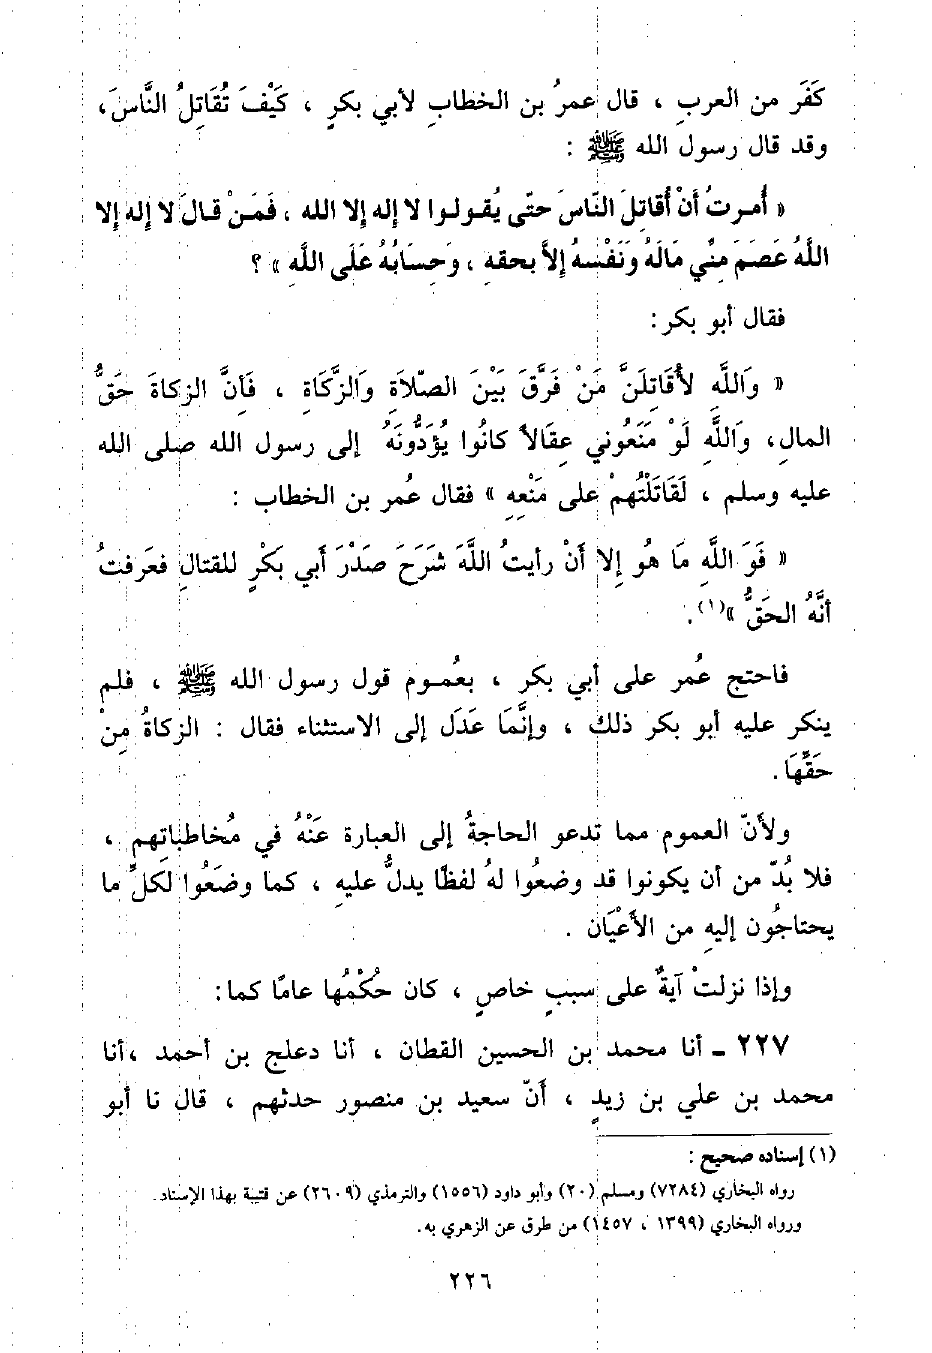 كَفَر من العربِ ، قال عمرُ بن الخطابِ لأبي بكرٍ ، كَيْفَ تُقَاتِلُ النَّاسَ،
وقد قال رسول الله ﷺ :
« أُمرتُ أَنْ أُقاتلَ النّاسَ حتّى يُقولوا لا إله إلا الله ، فَمَنْ قالَ لا إله إلا
اللَّهُ عَصَمَ مِنِّي مَالَهُ وَنَفْسهُ إلاَّ بحقه ، وحِسَابُهُ عَلَى اللَّهِ » ؟
فقال أبو بكر :
« وَاللَّهِ لأُقَاتِلَنَّ مَنْ فَرَّقَ بَيْنَ الصّلاَةِ وَالزَّكَاةِ ، فَأنَّ الزكاةَ حَقُّ
المالِ، وَاللَّهِ لَوْ مَنَعُوني عِقَالاً كانُوا يُؤدُّونَهُ إلى رسول الله صلى الله
عليه وسلم ، لَقَاتَلْتُهمْ على مَنْعِهِ » فقال عُمر بن الخطاب :
« فَوَ اللَّهِ مَا هُو إلا أنْ رأيتُ اللَّهَ شَرَحَ صَدْرَ أبي بَكْرٍ للقتالِ فعَرفتُ
أنَّهُ الحَقُّ »(١).
فاحتج عُمر على أبي بكر ، بعُموم قول رسول الله ﷺ ، فلم
ينكر عليه أبو بكر ذلك ، وإنَّمَا عَدَل إلى الاستثناء فقال : الزكاةُ مِنْ
حَقِّهَا.
ولأنّ العموم مما تدعو الحاجةُ إلى العبارة عَنْهُ في مُخاطباتِهم ،
فلا بُدّ من أن يكونوا قد وضعُوا لهُ لفظًا يدلُّ عليهِ ، كما وضَعُوا لكلِّ ما
يحتاجُون إليهِ من الأَعْيَان .
وإذا نزلتْ آيةٌ على سببٍ خاصٍ ، كان حُكْمُها عامًا كما:
٢٢٧ ـ أنا محمد بن الحسين القطان ، أنا دعلج بن أحمد ،أنا
محمد بن علي بن زيدٍ ، أنّ سعيد بن منصور حدثهم ، قال نا أبو
(١) إسناده صحيح :
رواه البخاري (٧٢٨٤) ومسلم (٢٠) وأبو داود (١٥٥٦) والترمذي (٢٦٠٩) عن قتيبة بهذا الإسناد.
ورواه البخاري (١٣٩٩ ، ١٤٥٧) من طرق عن الزهري به.
٢٢٦